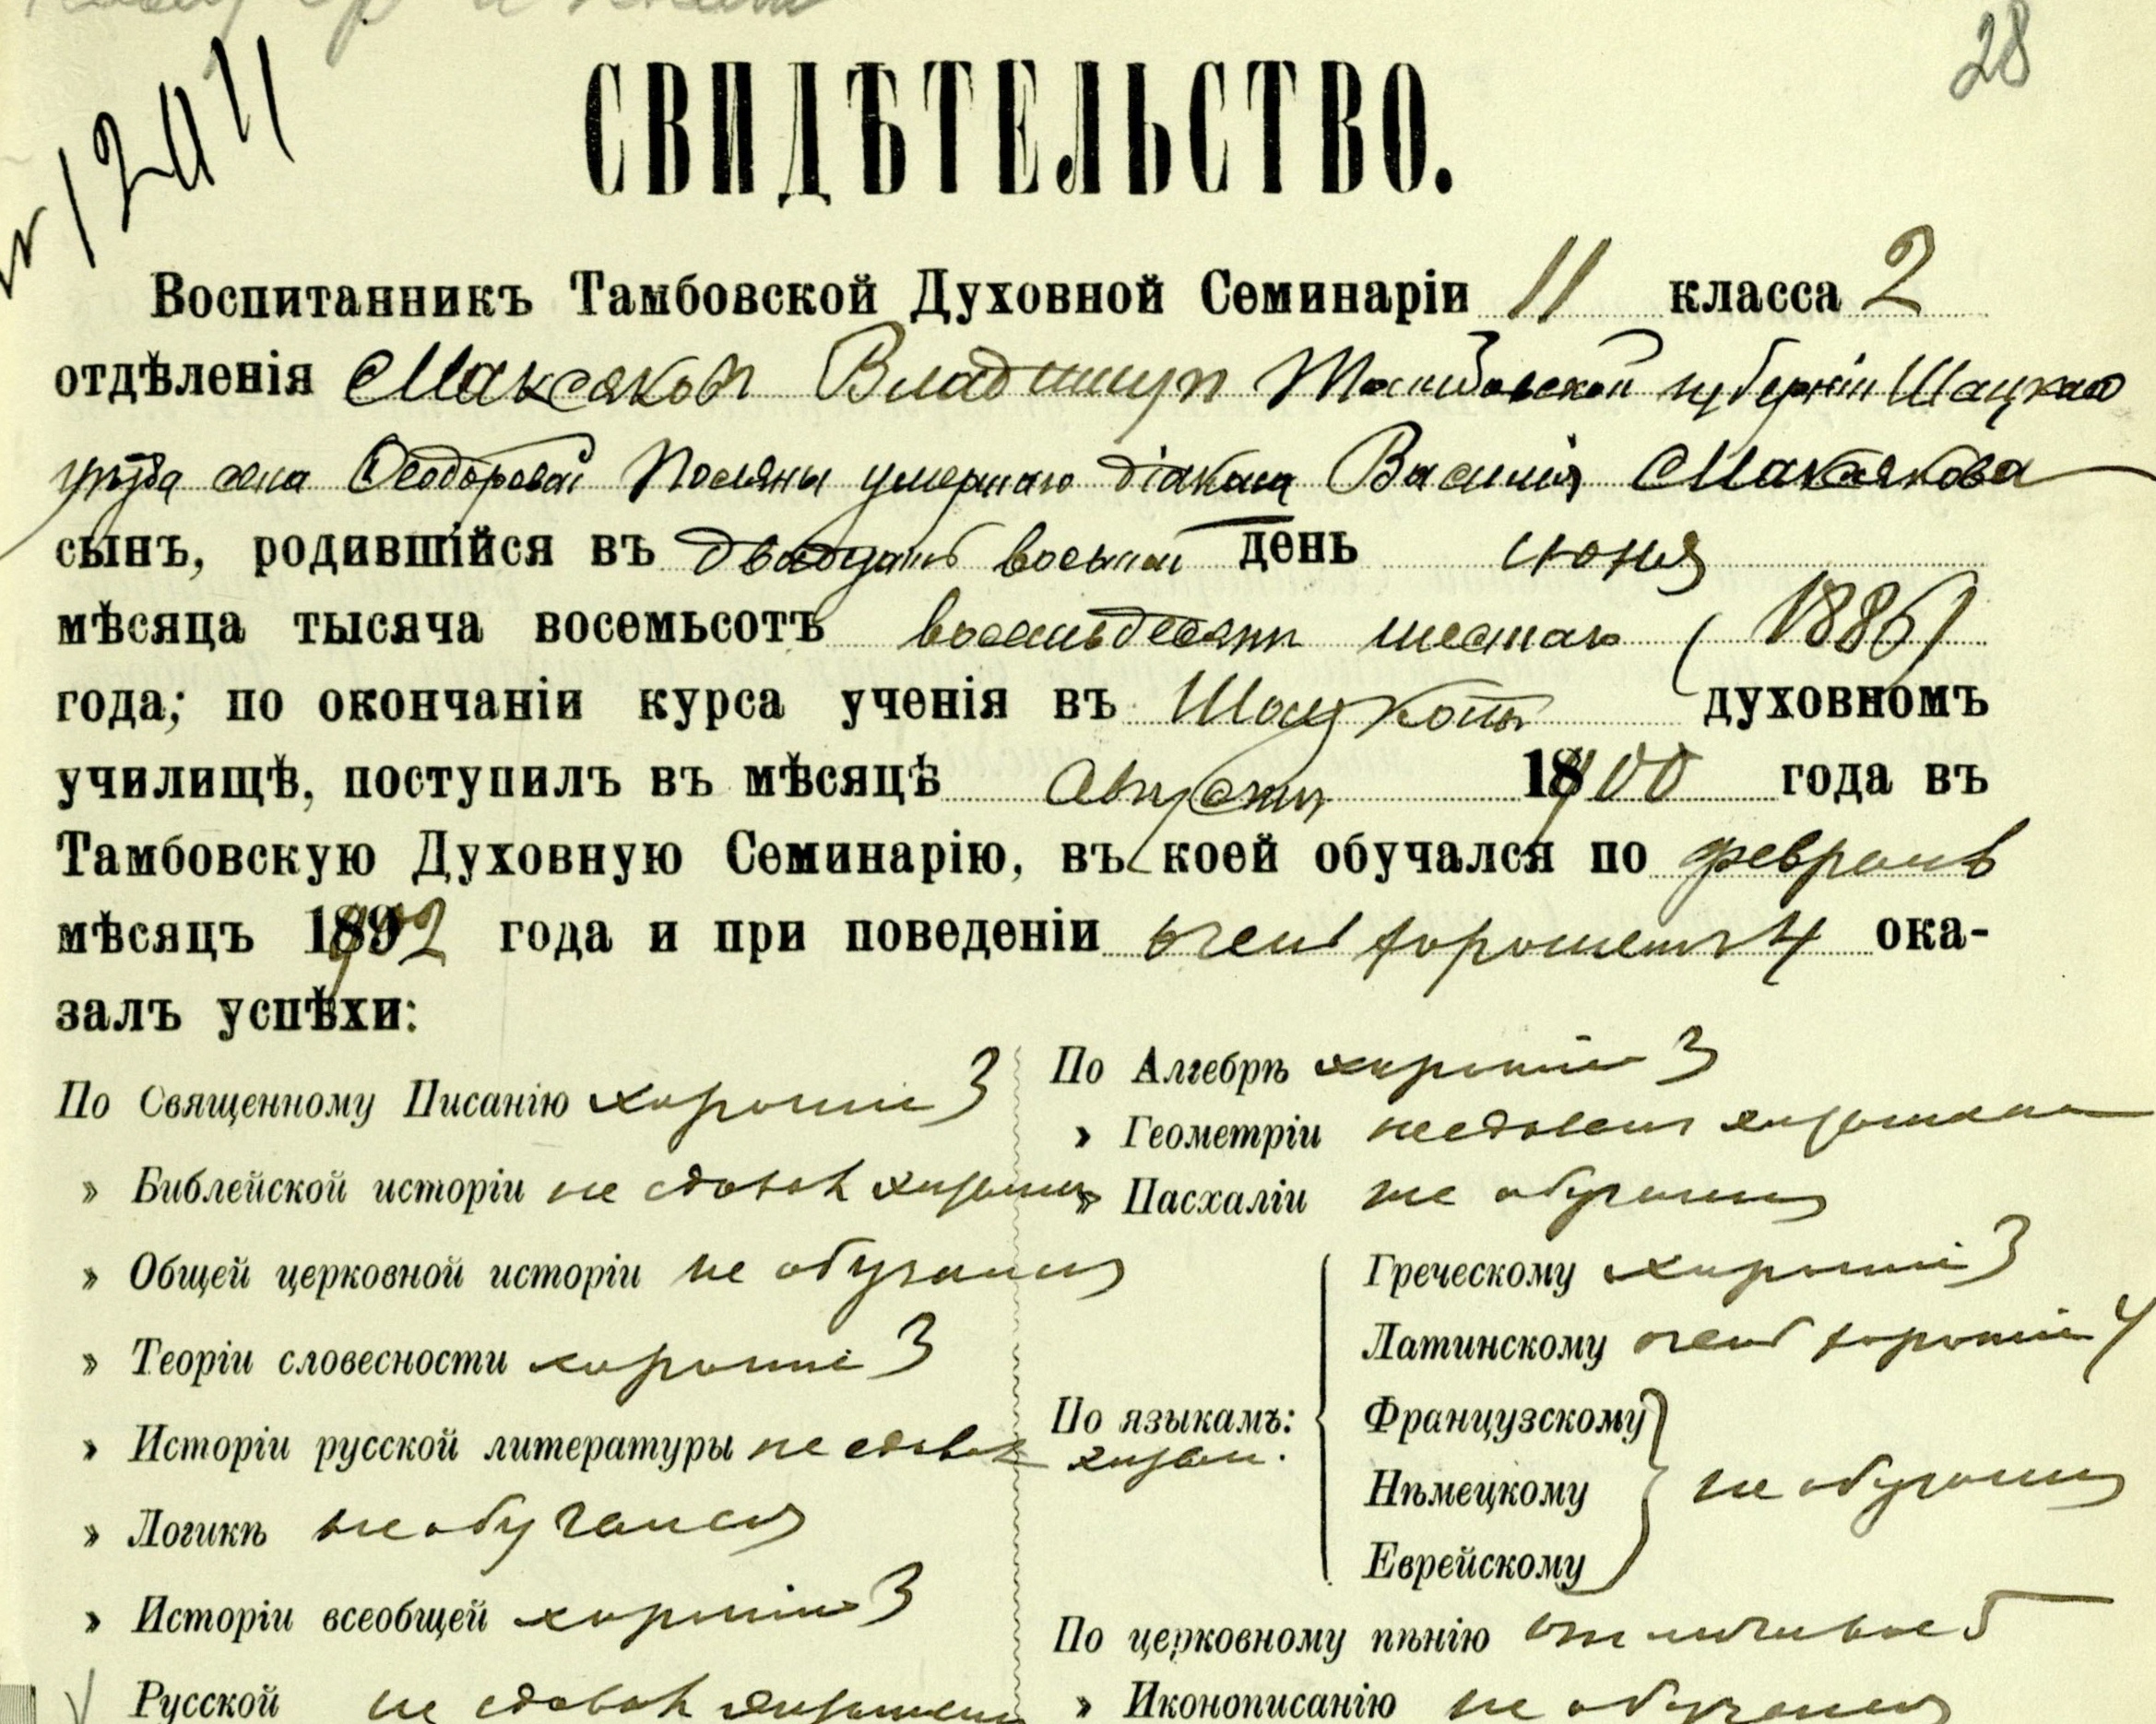 28
№ 1241
СВИДѢТЕЛЬСТВО.
Воспитанникъ Тамбовской Духовной Семинаріи II класса 2
отдѣленія Максяковъ Владиміръ Тамбовской губерніи Шацкаго
уѣзда села Ѳеодоровой Посьяны умершаго діакона Василія Максякова
сынъ, родившійся въ двадцать восьмой день іюня
мѣсяца тысяча восемьсотъ восемьдесятъ шестаго (1886)
года; по окончаніи курса ученія въ Шацкомъ духовномъ
училищѣ, поступилъ въ мѣсяцѣ Августѣ 1900 года въ
Тамбовскую Духовную Семинарію, въ коей обучался по февраль
мѣсяцъ 1902 года и при поведеніи очень хорошемъ 4 ока-
залъ успѣхи:
По Священному Писанію хорошіе 3
» Библейской исторіи не сдавалъ экзамена
» Общей церковной исторіи не обучался
» Теоріи словесности хорошіе 3
» Исторіи русской литературы не сдавалъ экзам.
» Логикѣ не обучался
» Исторіи всеобщей хорошіе 3
Русской не сдавалъ экзамена
По Алгебрѣ хорошіе 3
» Геометріи не сдавалъ экзамена
» Пасхаліи не обучался
По языкамъ:
Греческому хорошіе 3
Латинскому очень хорошіе 4
Французскому
Нѣмецкому не обучался
Еврейскому
По церковному пѣнію отличные 5
» Иконописанію не обучался